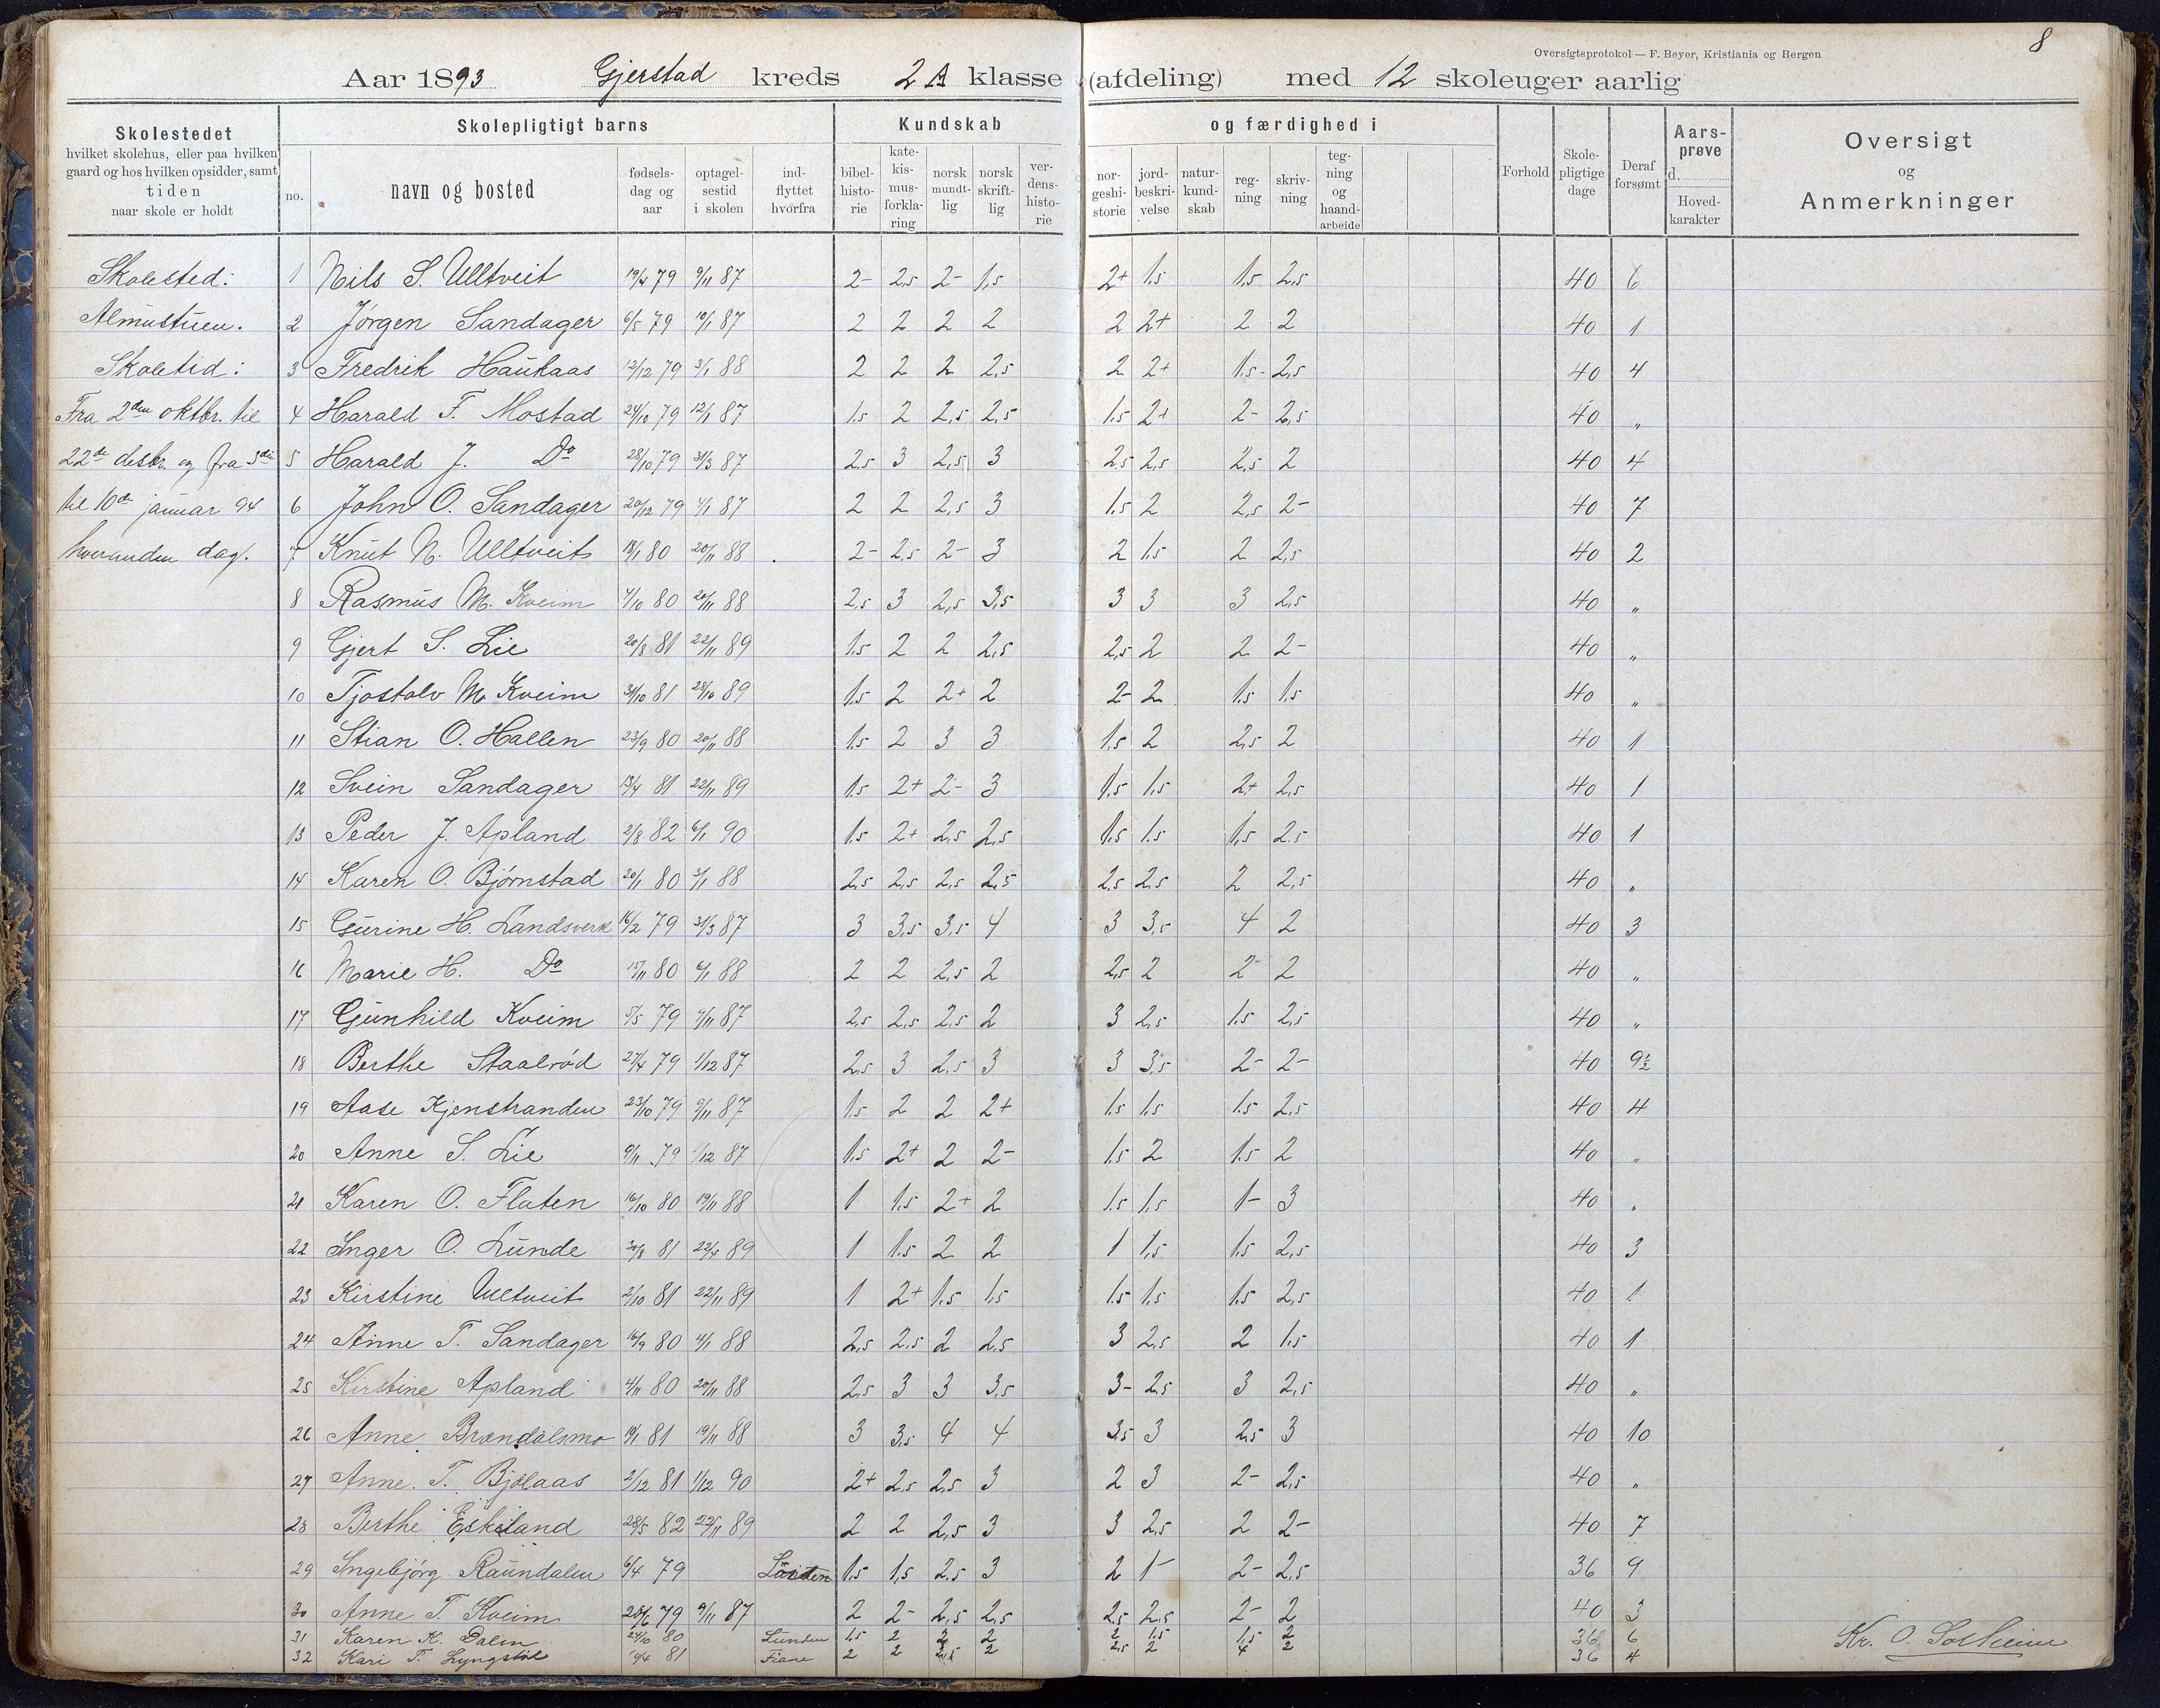 8
Oversigtsprotokol — F. Beyer, Kristiania og Bergen
Aar 1893 Gjerstad kreds 2 A klasse (afdeling) med 12 skoleuger aarlig
Skolestedet
hvilket skolehus, eller paa hvilken
gaard og hos hvilken opsidder, samt
tiden
naar skole er holdt
Skolepligtigt barns
no.
navn og bosted
fødsels-
dag og
aar
optagel-
sestid
i skolen
ind-
flyttet
hvorfra
Kundskab
bibel-
histo-
rie
kate-
kis-
mus-
forkla-
ring
norsk
mundt-
lig
norsk
skrift-
lig
ver-
dens-
histo-
rie
og færdighed i
nor-
geshi-
storie
jord-
beskri-
velse
natur-
kund-
skab
reg-
ning
skriv-
ning
teg-
ning
og
haand-
arbeide
Forhold
Skole-
pligtige
dage
Deraf
forsømt
Aars-
prøve
d.
Hoved-
karakter
Oversigt
og
Anmerkninger
Skolested:
Almustuen.
Skoletid:
Fra 2den oktbr. til
22de desbr. og fra 3die
til 10de januar 94
hveranden dag.
1 Nils S. Ulltveit 19/4 79 9/11 87 2- 2,5 2- 1,5 2+ 1.5 1.5 2,5 40 6
2 Jørgen Sandager 6/5 79 10/1 87 2 2 2 2 2 2+ 2 2 40 1
3 Fredrik Haukaas 12/12 79 3/1 88 2 2 2 2,5 2 2+ 1.5- 2,5 40 4
4 Harald T. Mostad 24/10 79 12/1 87 1.5 2 2,5 2,5 1.5 2+ 2- 2,5 40 "
5 Harald J. Do 28/10 79 31/3 87 2,5 3 2,5 3 2,5 2,5 2,5 2 40 4
6 John O. Sandager 20/12 79 4/1 87 2 2 2,5 3 1.5 2 2,5 2- 40 7
7 Knut N. Ulltveit 18/1 80 20/11 88 2- 2,5 2- 3 2 1.5 2 2,5 40 2
8 Rasmus M. Kveim 4/10 80 20/11 88 2,5 3 2,5 3,5 3 3 3 2,5 40 "
9 Gjert S. Lie 20/8 81 22/11 89 1.5 2 2 2,5 2,5 2 2 2- 40 "
10 Tjostolv M. Kveim 31/10 81 28/10 89 1.5 2 2+ 2 2- 2 1.5 1.5 40 "
11 Stian O. Hallen 23/9 80 20/11 88 1.5 2 3 3 1.5 2 2,5 2 40 1
12 Svein Sandager 19/4 81 22/11 89 1.5 2+ 2- 3 1.5 1.5 2+ 2,5 40 1
13 Peder J. Apland 2/8 82 6/1 90 1.5 2+ 2,5 2,5 1.5 1.5 1,5 2.5 40 1
14 Karen O. Bjørnstad 20/1 80 3/1 88 2,5 2,5 2,5 2,5 2,5 2,5 2 2,5 40 "
15 Gurine H. Landsverk 16/2 79 31/3 87 3 3,5 3,5 4 3 3,5 4 2 40 3
16 Marie H. Do 15/11 80 6/1 88 2 2 2,5 2 2,5 2 2- 2 40 "
17 Gunhild Kveim 5/5 79 9/11 87 2,5 2,5 2,5 2 3 2,5 1.5 2,5 40 "
18 Berthe Staalrød 27/4 79 1/12 87 2,5 3 2,5 3 3 3,5 2- 2- 40 9½
19 Aase Kjenstranden 23/10 79 9/11 87 1.5 2 2 2+ 1.5 1.5 1.5 2,5 40 4
20 Anne S. Lie 9/11 79 1/12 87 1.5 2+ 2 2- 1.5 2 1.5 2 40 "
21 Karen O. Flaten 16/10 80 19/11 88 1 1.5 2+ 2 1.5 1.5 1- 3 40 "
22 Inger O. Lunde 30/8 81 22/4 89 1 1.5 2 2 1 1.5 1.5 2,5 40 3
23 Kirstine Ulltveit 2/10 81 22/11 89 1 2+ 1.5 1.5 1.5 1.5 1.5 2,5 40 1
24 Anne T. Sandager 16/9 80 4/1 88 2,5 2,5 2 2,5 3 2,5 2 1.5 40 1
25 Kirstine Apland 4/11 80 20/11 88 2,5 3 3 3,5 3- 2,5 3 2,5 40 "
26 Anne Brændalsmo 19/1 81 19/11 88 3 3,5 4 4 3,5 3 2,5 3 40 10
27 Anne T. Bjølaas 2/12 81 1/12 90 2+ 2,5 2,5 3 2 3 2- 2,5 40 "
28 Berthe Eskeland 28/5 82 22/11 89 2 2 2,5 3 3 2,5 2 2- 40 7
29 Ingebjørg Raundalen 6/4 79 1.5 1,5 2,5 3 2 1- 2- 2,5 36 9
30 Anne T. Kveim 28/6 79 9/11 87 2 2- 2,5 2,5 2,5 2,5 2- 2 40 3
31 Karen K. Dalen 24/10 80 Lunden 1.5 2 2 2 2 1.5 1.5 2 36 6
32 Kari T. Lyngstøl 19/4 81 Fiane 2 2 2,5 2 2,5 2 4 2 36 4
Kr. O. Solheim